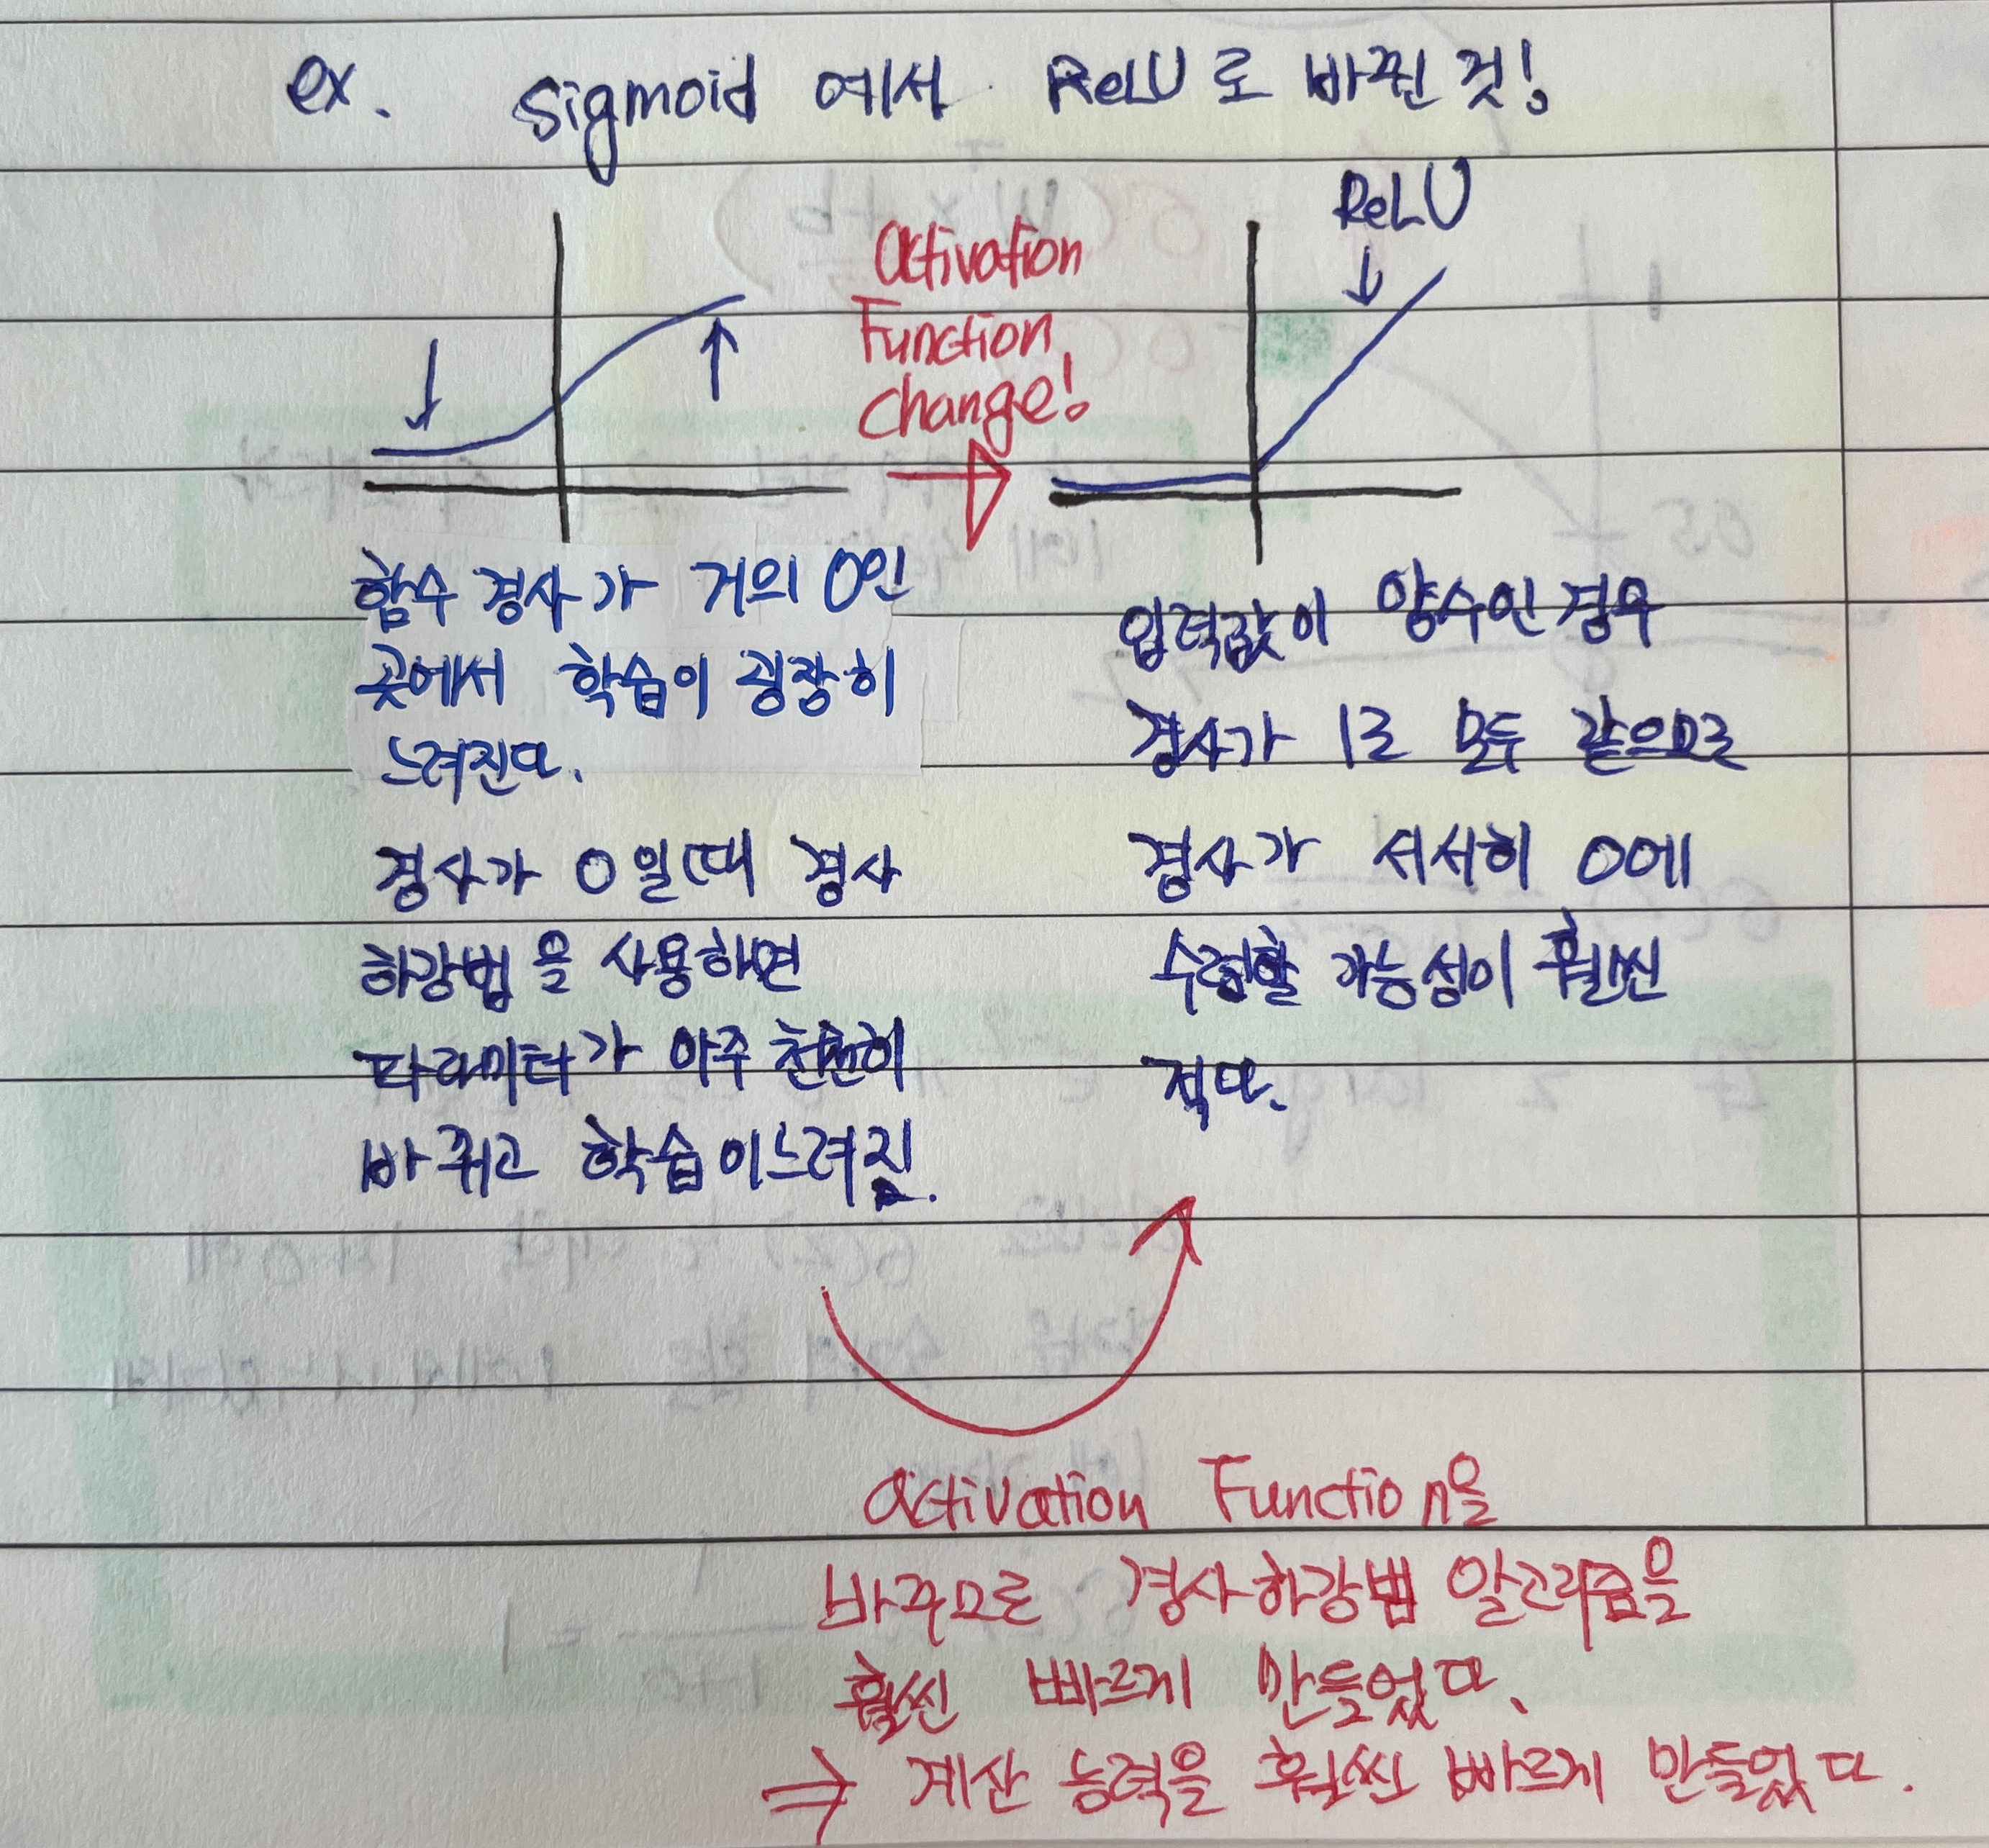 ex. Sigmoid 에서 ReLU로 바뀐 것!
ReLU
Activation
Function
change!
함수 경사가 거의 0인
곳에서 학습이 굉장히
느려진다.
경사가 0일때 경사
하강법을 사용하면
파라미터가 아주 천천히
바뀌고 학습이느려짐.
입력값이 양수인 경우
경사가 1로 모두 같으므로
경사가 서서히 0에
수렴할 가능성이 훨씬
적다.
activation Function을
바꾸므로 경사하강법 알고리즘을
훨씬 빠르게 만들었다.
⇒ 계산 능력을 훨씬 빠르게 만들었다.